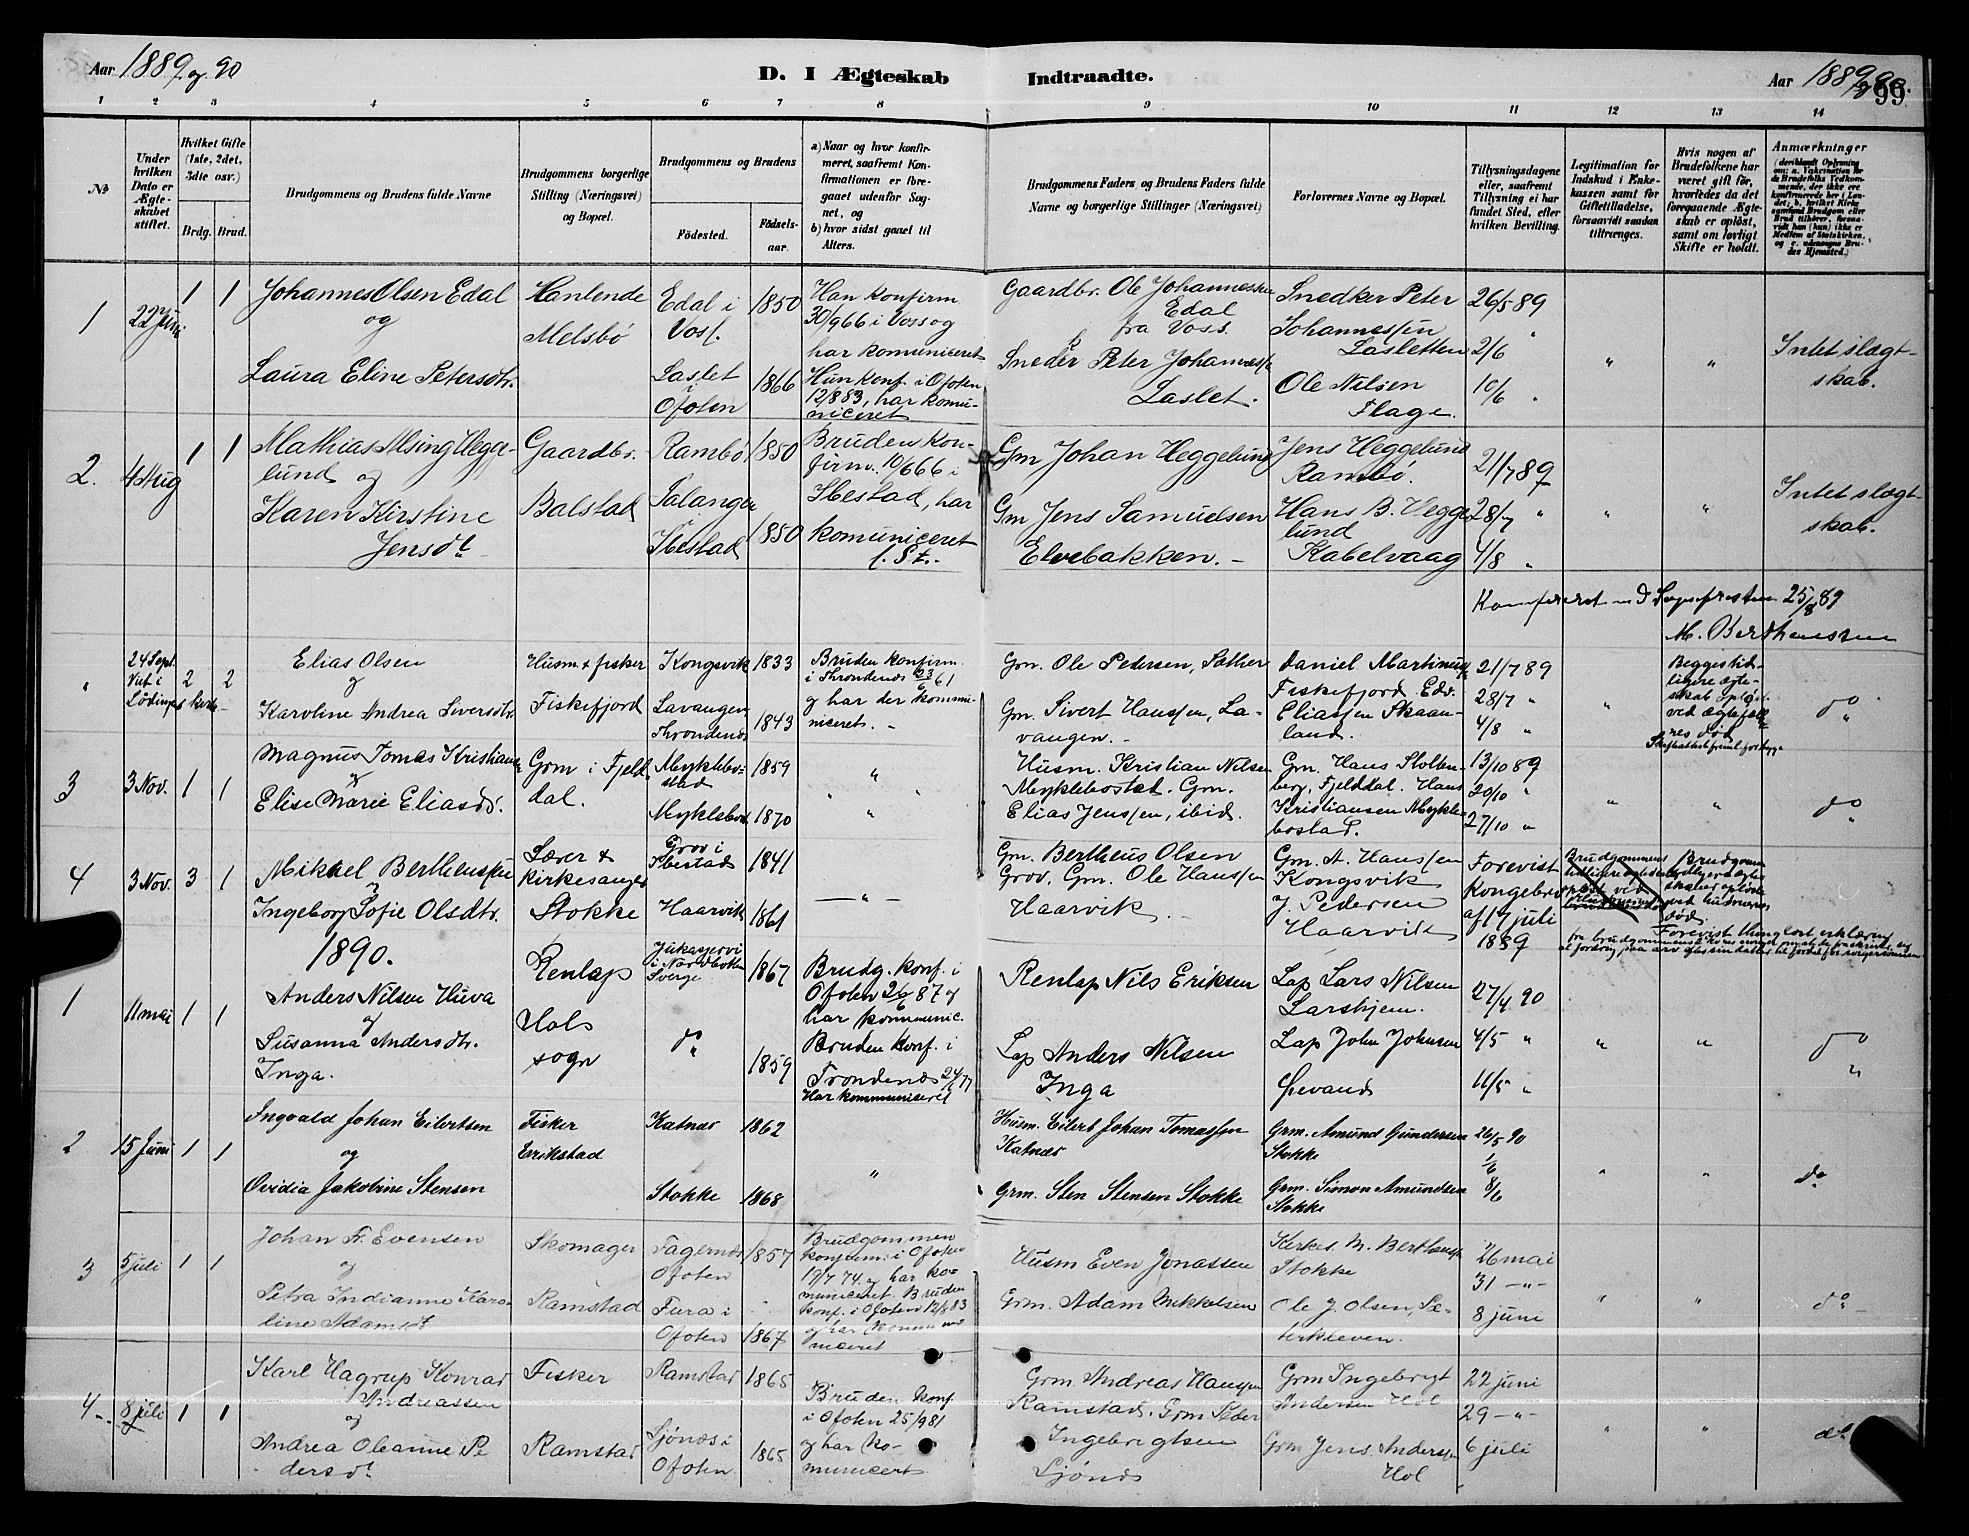 Aar 1889 og 90
D. I Ægteskab Indtraadte.
Aar 1889 og 90.
99
1 2 3 4 5 6 7 8 9 10 11 12 13 14
№
Under hvilken Dato er Ægteskabet stiftet.
Hvilket Gifte (1ste, 2det, 3die osv.)
Brdg. Brud.
Brudgommens og Brudens fulde Navne
Brudgommens borgerlige Stilling (Næringsvei) og Bopæl.
Brudgommens og Brudens
Fødested.
Fødselsaar.
a) Naar og hvor konfirmeret, saafremt Konfirmationen er foregaaet udenfor Sognet, og
b) hvor sidst gaaet til Alters.
Brudgommens Faders og Brudens Faders fulde Navne og borgerlige Stillinger (Næringsvei)
Forlovernes Navne og Bopæl.
Tillysningsdagene eller, saafremt Tillysning ei har fundet Sted, efter hvilken Bevilling.
Legitimation for Indskud i Enkekassen samt for Giftetilladelse, forsaavidt saadan tiltrænges.
Hvis nogen af Brudefolkene har været gift før, hvorledes da det foregaaende Ægteskab er opløst, samt om lovligt Skifte er holdt.
Anmærkninger
1 22 Juni 1 1
Johannes Olsen Edal
og
Laura Eline Petersdtr.
Handlende
Melsbö
Edal i Voss.
1850
Lastet i Ofoten
1866
Han konfirm
30/9 66 i Voss og
har komuniceret
Hun konf. i Ofoten
12/8 83, har komuniceret
Gaardbr. Ole Johannessen
Edal
fra Voss.
Sneder Peter Johanness.
Laslet.
Snedker Peter
Johannessen
Lasletten
Ole Nilsen
Flage.
26/5 89
2/6 "
10/6 "
" "
Intet slægtskab.
2. 4 Aug 1 1
Mathias Alsing Heggelund og
Karen Kirstine
Jensdt
Gaardbr.
Balstad
Rambö
1850
Salangen
Ibestad
1850
Bruden konfirm. 10/6 66 i
Ibestad, har
komuniceret
l. St.
Gm Johan Heggelund
Gm Jens Samuelsen
Elvebakken. -
Jens Heggelund
Rambö.
Hans B. Heggelund
Kabelvaag
21/7 89
28/7 "
4/8 "
" "
Intet slægtskab.
Konfereret m d Sognepresten 25/8 89
M. Bertheussen
" 24 Sept. Viet i Lödingens kirke 2 2
Elias Olsen
og
Karoline Andrea Siversdtr.
Husm. & fisker
Fiskefjord
Kongsvik 1833
Lavangen
Throndenes 1843
Bruden konfirm.
i Throndenes 23/6 61
og har der kommuniceret. -
Gm. Ole Pedersen, Sather
Gm. Sivert Hanssen, Lavangen. -
Daniel Martinuss.
Fiskefjord. Edv.
Eliassen Skaanland.
21/7 89
28/7 "
4/8 "
"
Begges tidligere ægteskab oplöst
ved ægtefælleres död
do
3 3 Nov. 1 1
Magnus Tomas Kristians.
og
Elise Marie Eliasdr.
Grm i Fjelddal.
Myklebostad 1859
Myklebost. 1870
"
"
Husm. Kristian Nilsen
Myklebostad. Gm.
Elias Jenssen, ibid.
Gm. Hans Stoltenberg, Fjelddal. Hans
Kristiansen Myklebostad.
13/10 89
20/10 "
27/10 "
" "
do
4 3 Nov. 3 1
Mikael Bertheussen
og
Ingeborg Sofie Olsdtr.
Lærer &
kirkesanger
Stokke
Grov i
Ibestad 1841
Haarvik 1861
- " -
Gm. Bertheus Olsen
Grov. Gm. Ole Hanssen
Haarvik. -
Gm. A. Hanssen
Kongsvik
J. Pedersen
Haarvik
Forevist
Kongebrev
af 17 juli
1889
Brudgommens
1890.
1 11 mai 1 1
Anders Nilsen Huva
og
Susanna Andersdtr.
Inga.
Renlap
Hols
sogn
Jukasjervi
i Nordbotten
Sverge 1867
do
1859
Brudg. konf. i
Ofoten 26/6 87 og
har kommunic.
Bruden konf. i
Trondenes 24/6 77
Har kommuniceret
Renlap Nils Eriksen
Lap Anders Nilsen
Inga
Lap Lars Nilsen
Larshjem.
Lap John Johnsen
Övevand
27/4 90
4/5 "
11/5 "
" "
do
"
2 15 Juni 1 1
Ingvald Johan Eilertsen
og
Ovidia Jakobine Stensen
Fisker
Erikstad
Katnes 1862
Stokke 1868
"
Husm. Eilert Johan Tomassen
Katnæs
Grm. Sten Stensen Stokke
Grm. Amund Gundersen
Stokke
Grm. Simon Amundsen
Stokke
26/5 90
1/6
8/6
" "
do
3 5 juli 1 1
Johan Fr. Evensen
og
Petra Indianne Karoline Adamsdt
Skomager
Ramstad
Fagernes
Ofoten 1857
Fura i
Ofoten 1867
Brudgommen
konfirm. i Ofoten
19/7 74 og har komuniceret. Bruden
konf. i Ofoten 12/8 83
og har kommuniceret
Husm Even Jonassen
Grm. Adam Mikkelsen
Kirkes. M. Bertheuss.
Stokke
Ole J. Olsen, Sæterkleven.
26 mai
31 - " -
8 juni
" "
do -
4 - 8 juli 1 1
Karl Hagrup Konrad
Andreassen
og
Andrea Oleanne Pedersdt
Fisker
Ramstad
Ramstad 1865
Sjönes i
Ofoten 1865
Bruden konf
i Ofoten 25/9 81
og har komunicert
Grm. Andreas Hanssen
Ramstad. Grm Peder
Ingebrigtsen
Sjönes
Grm Ingebrigt
Andersen Hol
Grm Jens Anderssen
Hol
22 juni
29 - " -
6 juli
" "
do